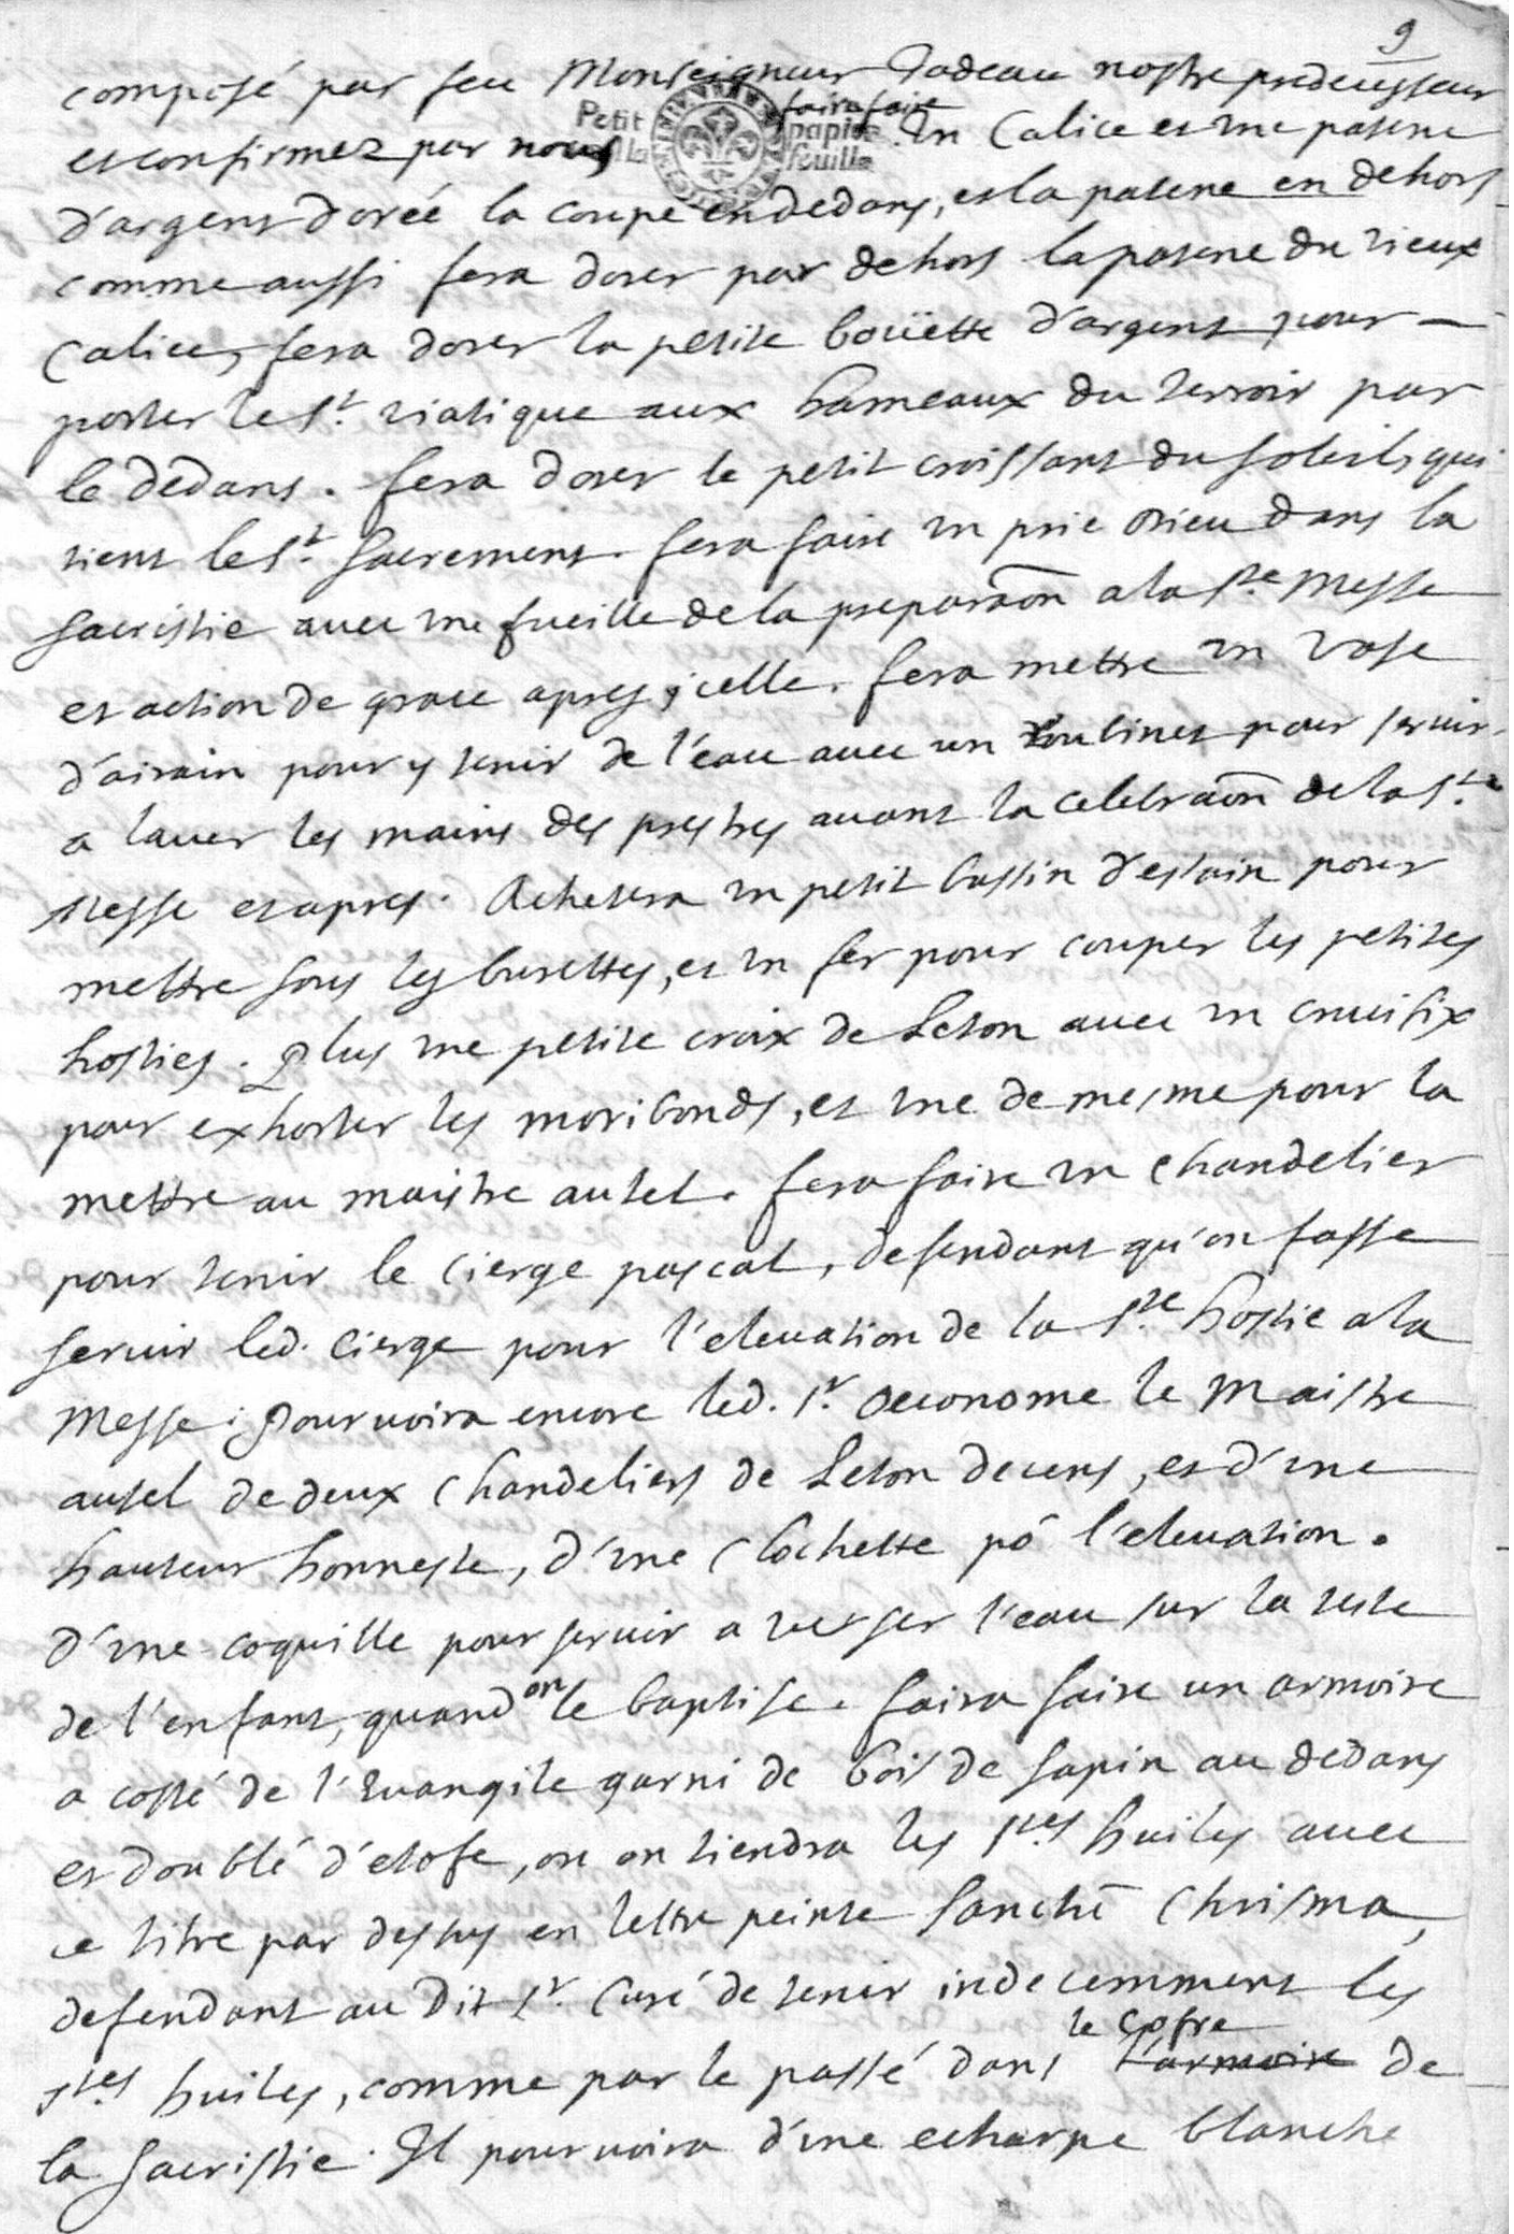 9
composé par feu Monseigneur Godeau nostre predecesseur
et confirmez par nous faira faire un Calice et une patene
Petit papier
feuille
d'argent dorée la coupe en dedans, et la patene en dehors
comme aussi fera dorer par dehors la patene du vieux
Calice, fera dorer la petite boüette d'argent pour
porter le st. viatique aux hameaux du terroir par
le dedans. fera dorer le petit croissant du soleil, qui
tient le st. sacrement. fera faire un prie Dieu dans la
sacristie avec une fueille de la preparaon a la ste messe
et action de grace apres icelle. fera mettre un vase
d'airain pour y tenir de l'eau avec un roubinet pour servir
a laver les mains des prestres avant la celebraon de la ste
Messe et apres. Achettera un petit bassin d'estain pour
mettre sous les burettes, et un fer pour couper les petites
hosties. Plus une petite croix de Leton avec un crucifix
pour exhorter les moribonds, et une de mesme pour la
mettre au maistre autel. fera faire un chandelier
pour tenir le Cierge pascal, defendant qu'on fasse
servir led. cierge pour l'elevation de la ste hostie a la
Messe. Pourvoira encore led. sr. oeconome le Maistre
autel de deux Chandeliers de Leton decens, et d'une
hauteur honneste, d'une Clochette po l'elevation.
d'une coquille pour servir a verser l'eau sur la teste
de l'enfant, quand on le baptise. faira faire un armoire
a costé de l'Evangile garni de bois de sapin au dedans
et doublé d'etofe, ou on tiendra les stes huiles avec
ce titre par dessus en lettre peinte Sanctū Chrisma,
defendant au Dit sr. Curé de tenir indecemment les
stes huiles, comme par le passé dans l'armoire le Cofre de
la sacristie. Il pourvoira d'une echarpe blanche